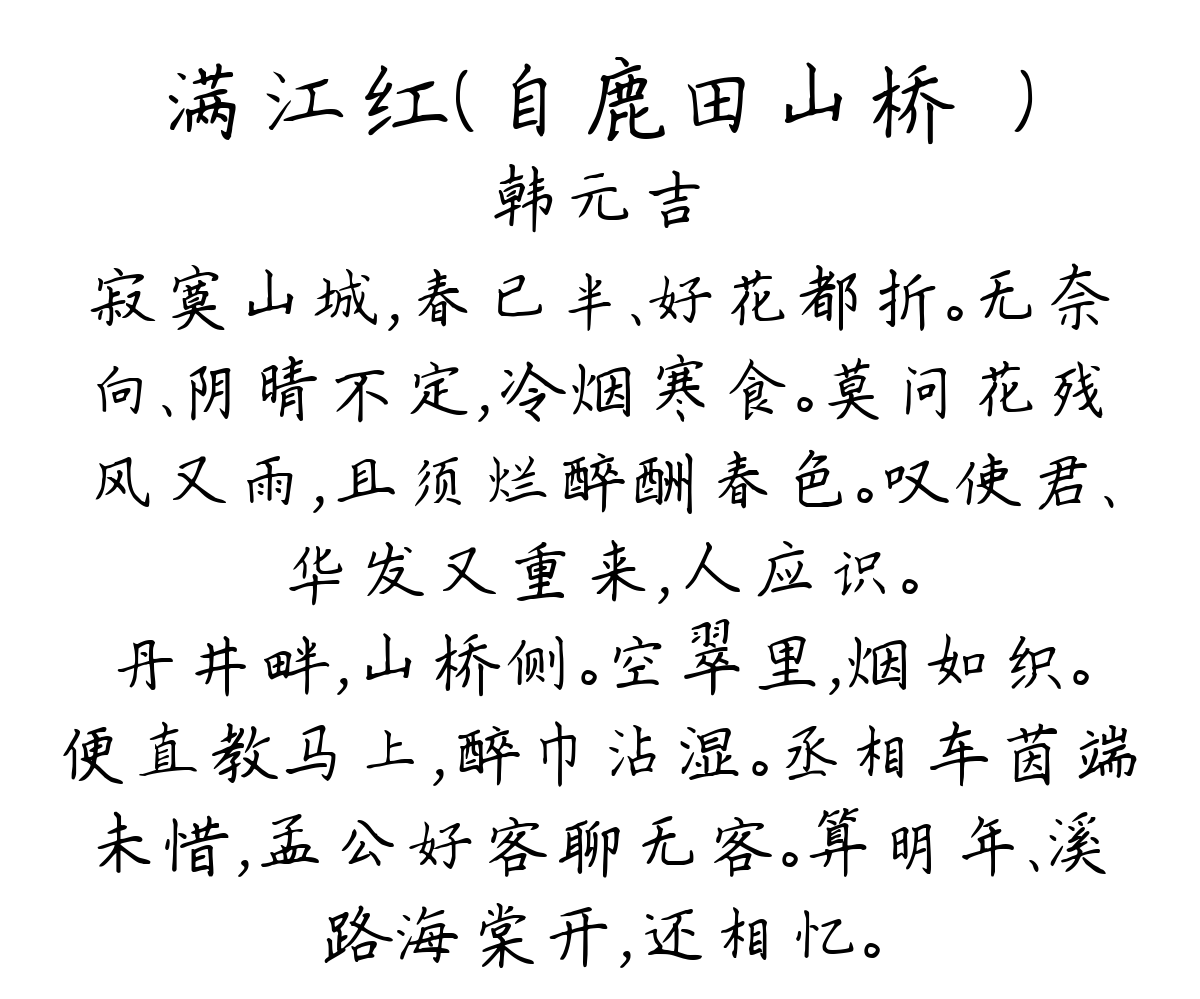 满江红(自鹿田山桥 )
韩元吉
寂寞山城,春已半、好花都折。无奈
向、阴晴不定,冷烟寒食。莫问花残
风又雨,且须烂醉酬春色。叹使君、
华发又重来,人应识。
丹井畔,山桥侧。空翠里,烟如织。
便直教马上,醉巾沾湿。丞相车茵端
未惜,孟公好客聊无客。算明年、溪
路海棠开,还相忆。